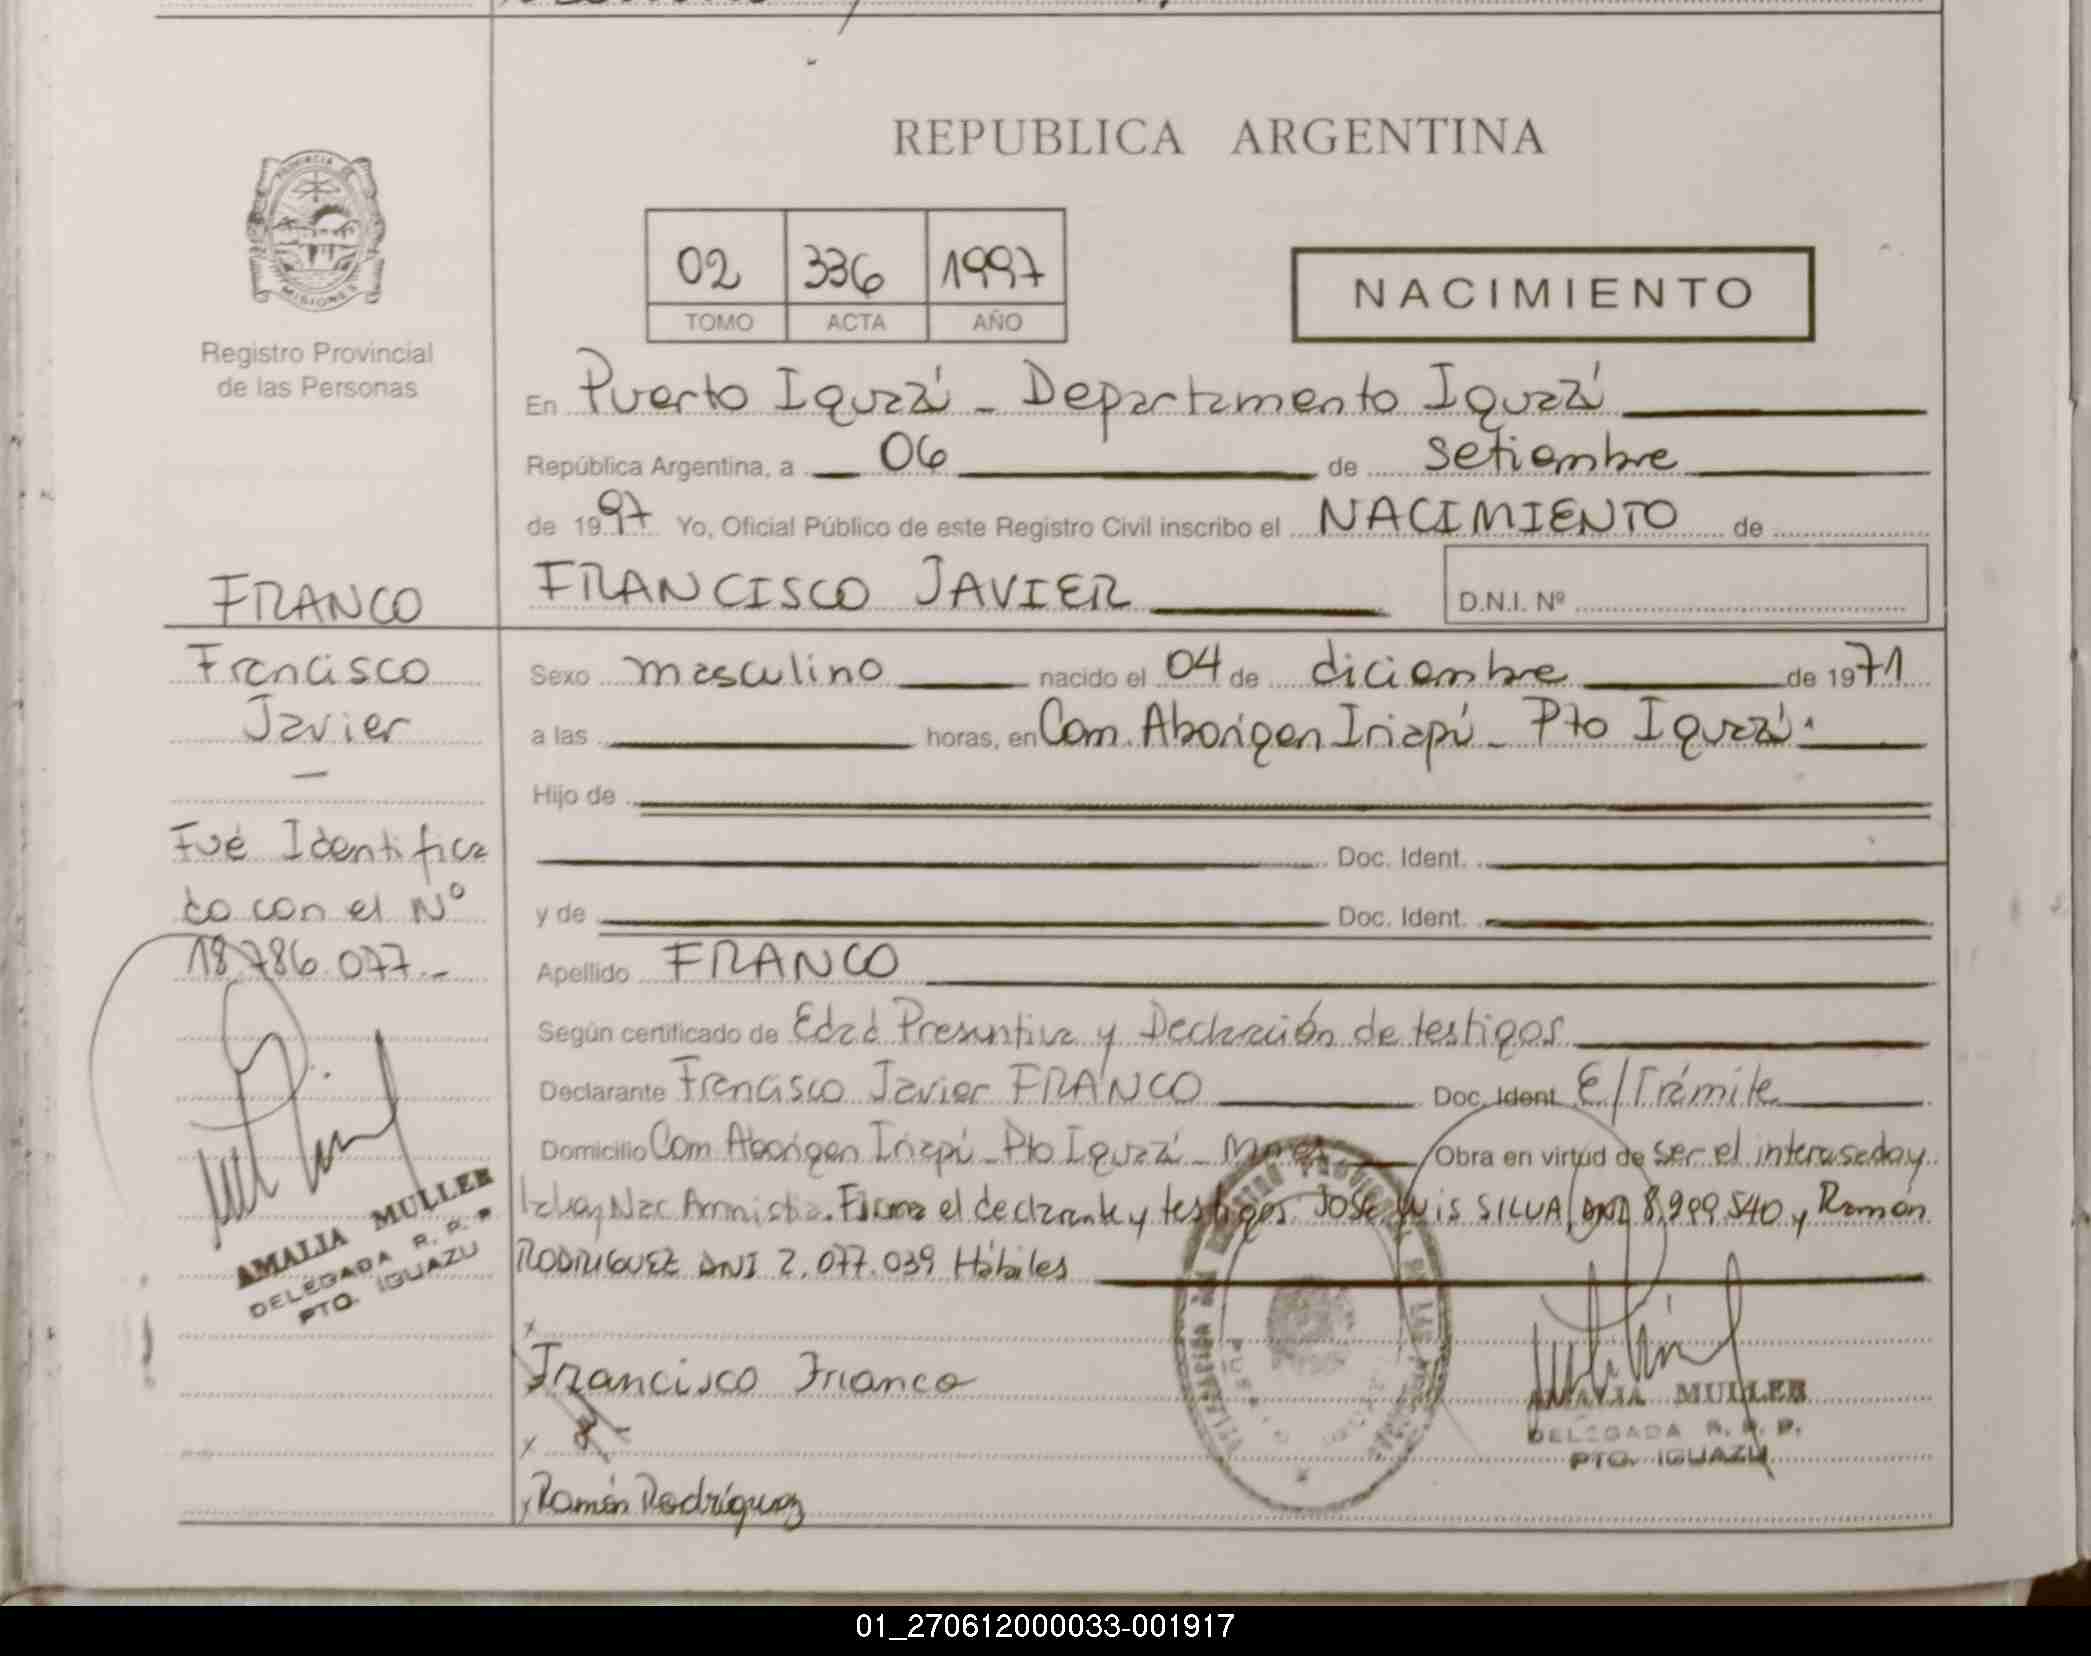 REPUBLICA ARGENTINA
PROVINCIA DE
MISIONES
Registro Provincial
de las Personas
02 336 1997
TOMO ACTA AÑO
NACIMIENTO
En Puerto Iguazú - Departamento Iguazú
República Argentina, a 06 de setiembre
de 1997 Yo, Oficial Público de este Registro Civil inscribo el NACIMIENTO de
FRANCISCO JAVIER D.N.I. Nº
FRANCO
Francisco
Javier
Fué Identifica
do con el Nº
18.786.077.-
AMALIA MULLER
DELEGADA R. P. P
PTO. IGUAZU
Sexo masculino nacido el 04 de diciembre de 1971
a las horas, en Com. Aborigen Iriapú - Pto Iguazú.
Hijo de
Doc. Ident.
y de Doc. Ident.
Apellido FRANCO
Según certificado de Edad Presuntiva y Declaración de testigos
Declarante Francisco Javier FRANCO Doc. Ident. E/Trámite
Domicilio Com Aborigen Iriapú - Pto Iguazú - Mnes Obra en virtud de ser el interesado y
la Ley Nac Amnistia. Firma el declarante y testigos José Luis SILVA DNI 8.299.540 y Ramón
RODRIGUEZ DNI 2.077.039 Hábiles
x
Francisco Franco
x
x Ramón Rodríguez
AMALIA MULLER
DELEGADA R. P. P.
PTO. IGUAZU
01_270612000033-001917